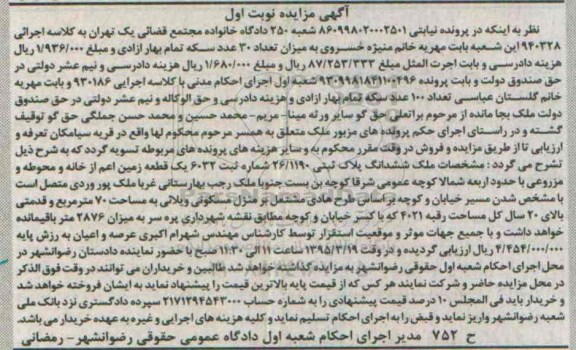 آگهی مزایده نوبت اول
نظر به اینکه در پرونده نیابتی ۸۶۰۹۹۸۰۲۰۰۰۲۵۰۱ شعبه ۲۵۰ دادگاه خانواده مجتمع قضائی یک تهران به کلاسه اجرائی
۹۴۰۳۲۸ این شعبه بابت مهریه خانم منیژه خسروی به میزان تعداد ۳۰ عدد سکه تمام بهار ازادی و مبلغ ۱/۹۳۶/۰۰۰ ریال
هزینه دادرسی و بابت اجرت المثل مبلغ ۸۷/۲۵۳/۳۳۳ ریال و مبلغ ۱/۶۸۰/۰۰۰ ریال هزینه دادرسی و نیم عشر دولتی در
حق صندوق دولت و بابت پرونده ۹۳۰۹۹۸۱۸۴۱۱۰۰۴۹۶ شعبه اول اجرای احکام مدنی با کلاسه اجرایی ۹۳۰۱۸۶ و بابت مهریه
خانم گلستان عباسی تعداد ۱۰۰ عدد سکه تمام بهار ازادی و هزینه دادرسی و حق الوکاله و نیم عشر دولتی در حق صندوق
دولت ملک بجا مانده از مرحوم براتعلی حق گو سایر ورثه مینا - مریم - محمد حسین و محمد حسن جملگی حق گو توقیف
گشته و در راستای اجرای حکم پرونده های مزبور ملک متعلق به همسر مرحوم محکوم لها واقع در قریه سیامکان تعرفه و
ارزیابی تا از طریق مزایده و فروش در وقت مقرر محکوم به و سایر هزینه های پرونده های مربوطه تسویه گردد که به شرح ذیل
تشرح می گردد : مشخصات ملک ششدانگ پلاک ثبتی ۲۶/۱۱۹۰ شماره ثبت ۶۰۳۲ یک قطعه زمین اعم از خانه و محوطه و
مزروعی با حدود اربعه شمالا کوچه عمومی شرقا کوچه بن بست جنوبا ملک رجب بهارستانی غربا ملک پور وردی متصل است
با مشخص شدن مسیر خیابان و کوچه بر اساس طرح هادی مشتمل بر منزل مسکونی ویلائی به مساحت ۷۰ مترمربع و قدمتی
بالای ۲۰ سال کل مساحت رقبه ۴۰۲۱ که با کسر خیابان و کوچه مطابق نقشه شهرداری پره سر به میزان ۲۸۷۶ متر باقیمانده
خواهد داشت و با جمیع جهات موثر و موقعیت استقرار توسط کارشناس مهندس شهرام اکبری عرصه و اعیان به رزش پایه
۴/۴۵۴/۰۰۰/۰۰۰ ریال ارزیابی گردیده و در وقت ۱۳۹۵/۳/۱۹ ساعت ۱۱ الی ۱۱:۳۰ صبح با حضور نماینده دادستان رضوانشهر در
محل اجرای احکام شعبه اول حقوقی رضوانشهر به مزایده گذاشته خواهد شد طالبین و خریداران می توانند در وقت فوق الذکر
در محل مزایده حاضر و شرکت نمایند هر کس که از قیمت پایه بالاترین قیمت را پیشنهاد نماید به ایشان فروخته خواهد شد
و خریدار باید فی المجلس ۱۰ درصد قیمت پیشنهادی را به شماره حساب ۲۱۷۱۲۹۴۵۴۳۰۰۰ سپرده دادگستری نزد بانک ملی
شعبه رضوانشهر واریز نماید و قبض را به اجرای احکام تسلیم نماید و کلیه هزینه های اجرایی و غیره به عهده خریدار می باشد.
ح ۷۵۲ مدیر اجرای احکام شعبه اول دادگاه عمومی حقوقی رضوانشهر - رمضانی